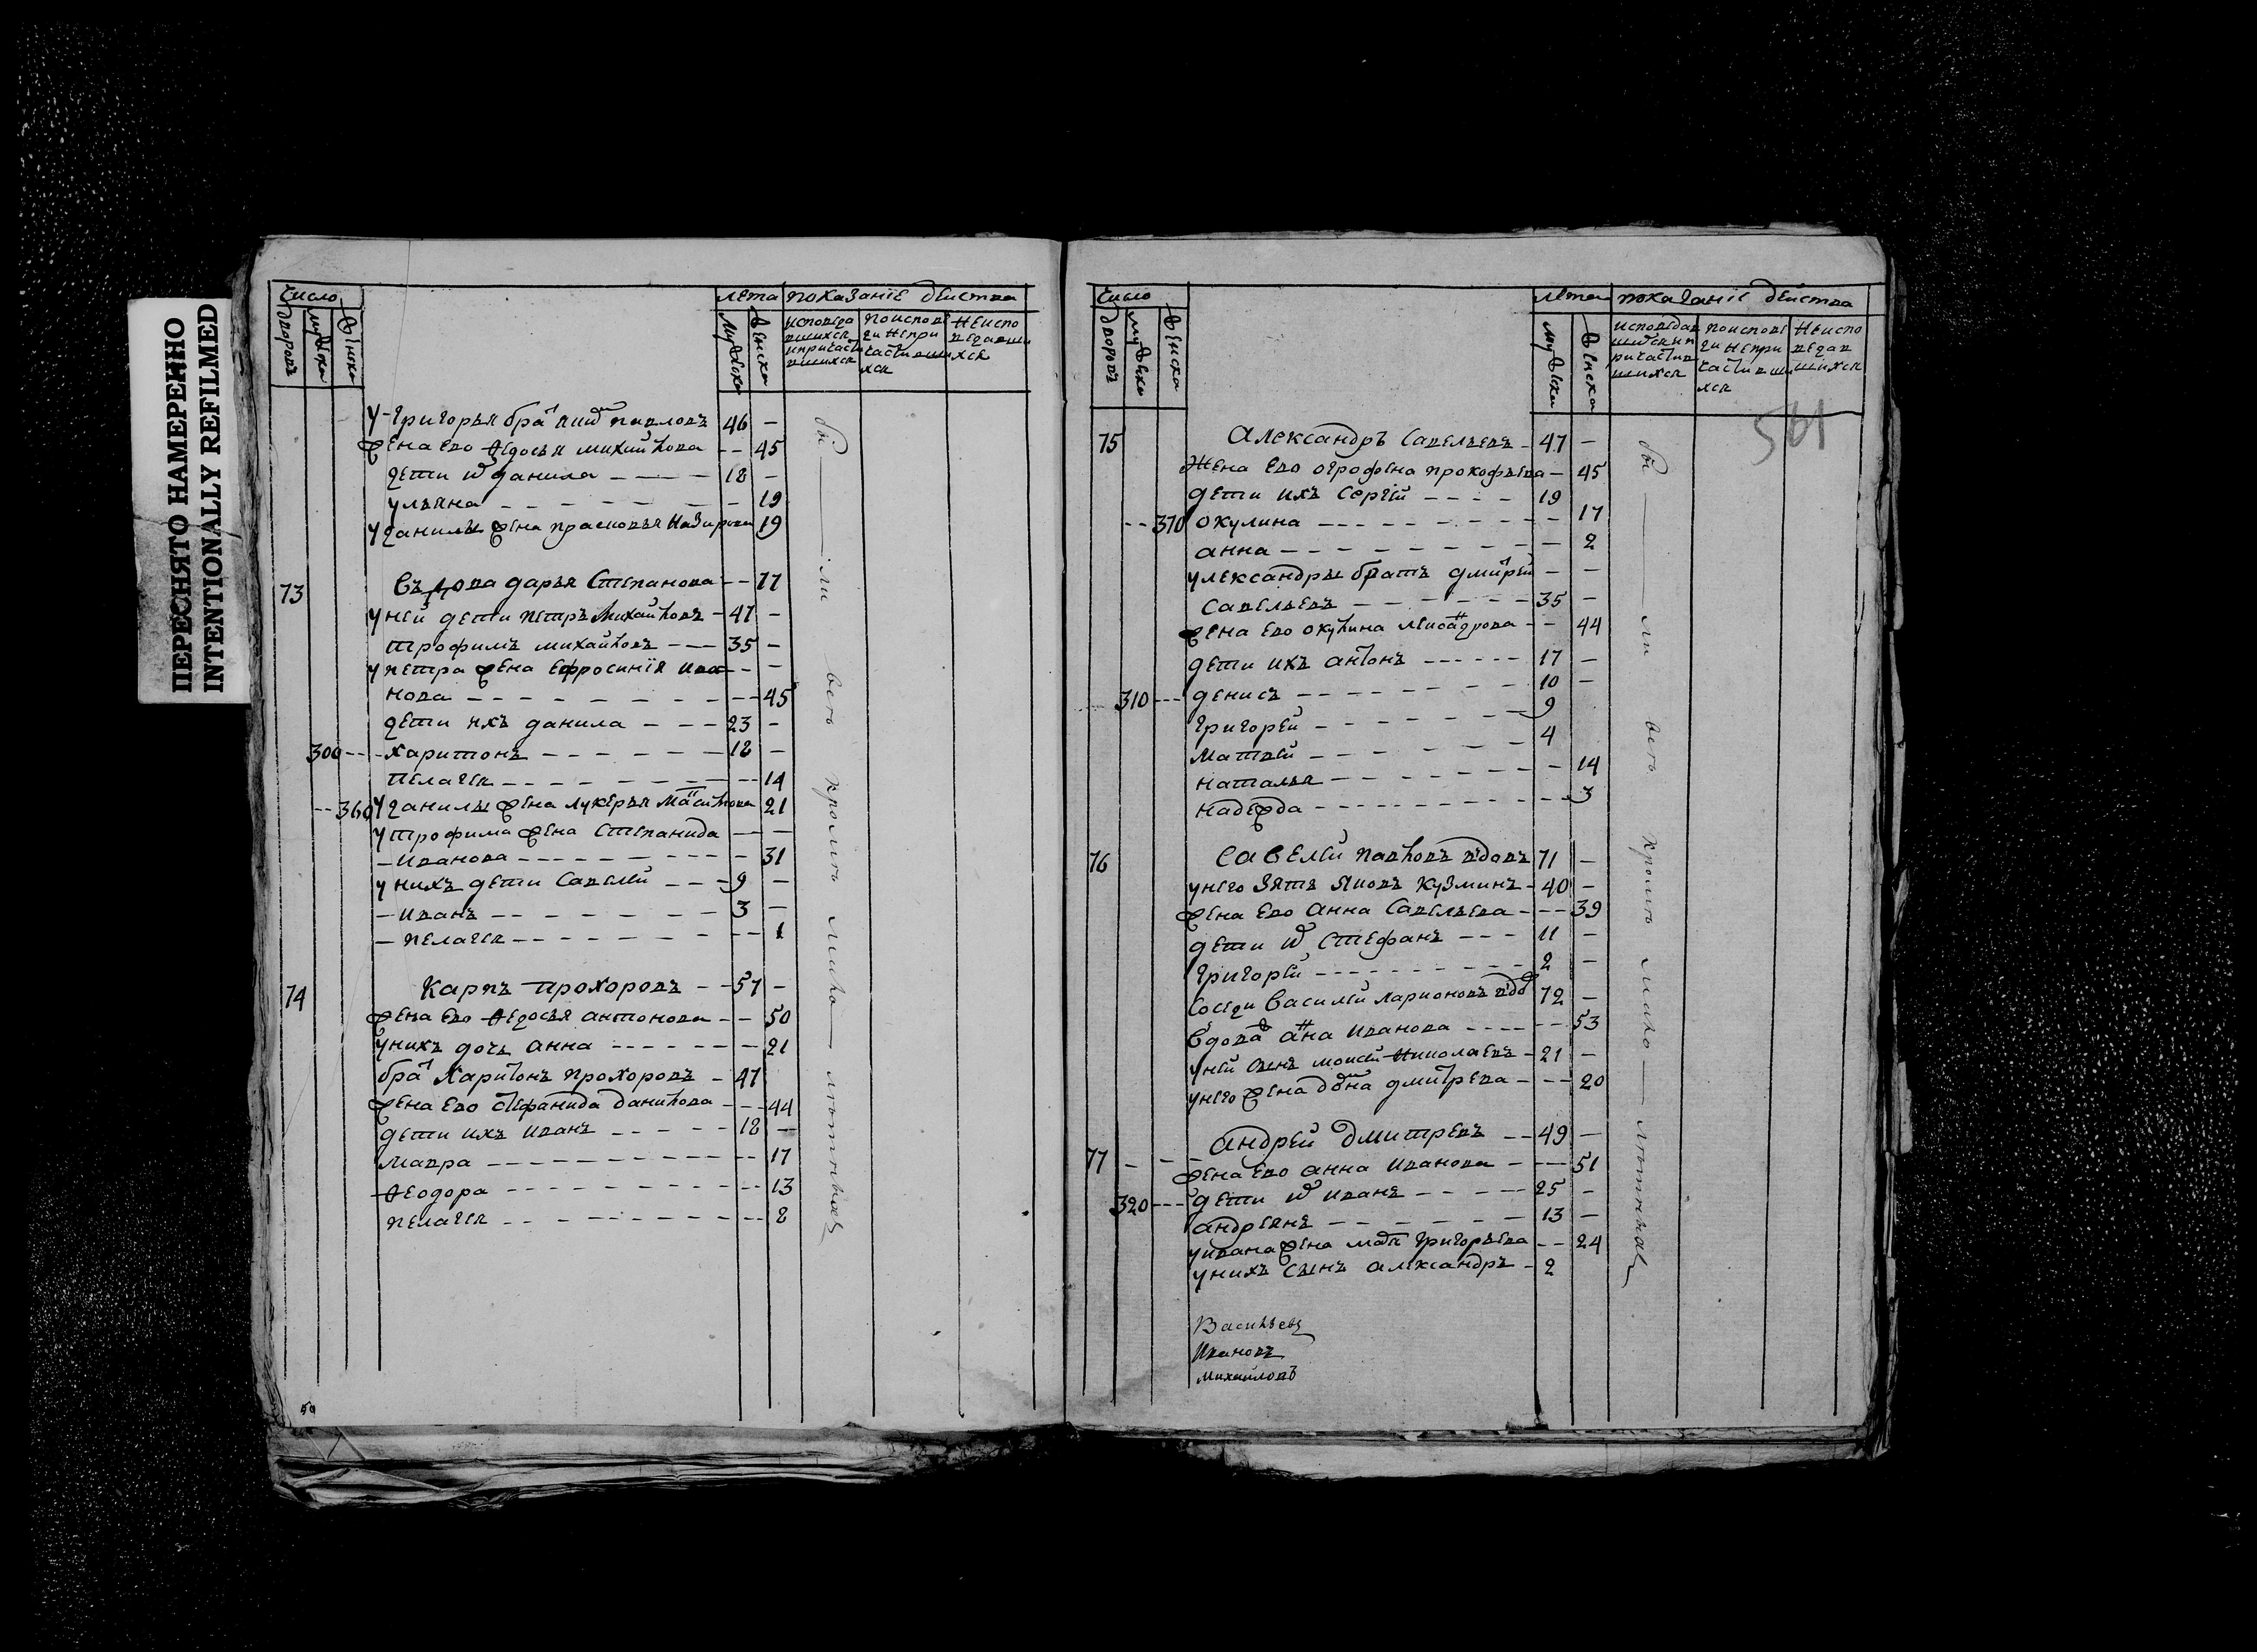 ПЕРЕСНЯТО НАМЕРЕННО
INTENTIONALLY REFILMED
число
дворовъ мужеска женска
лета показанїе действа
мужеска женска
исповеда
вшихся
и причасти
вшихся
по испове
ди не при
частивши
хся
не испо
ведавши
хся
у григорья бра павловъ 46 —
жена ево ѳедосья михайлова — 45
дети данила — 18 —
ульяна — 19
у данилы жена прасковья назарова 19
73 въдова дарья степанова — 77
у ней дети петръ михайловъ — 47 —
трофимъ михайловъ — 35 —
у петра жена ефросинїя ива — —
нова — 45
дети ихъ данила — 23 —
300 — харитонъ — 18 —
пелагея — 14
— 360 у данилы жена лукерья 21
у трофима жена степанида — —
— иванова — 31
у нихъ дети савелей — 9 —
— иванъ — 3 —
— пелагея — 1
74 карпъ прохоровъ — 57 —
жена ево ѳедосья антонова — 50
у нихъ дочь анна — 21
бра харитонъ прохоровъ — 47
жена ево стефанида данилова — 44
дети ихъ иванъ — 18 —
мавра — 17
ѳеодора — 13
пелагея — 8
бы — ли всего кроме мало — летныхъ
50
число
дворовъ мужеска женска
лета показанїе действа
мужеска женска
исповедав
шихся и п
ричастив
шихся
по испове
ди не при
частивши
хся
не испо
ведав
шихся
501
75 александръ савельевъ — 47 —
жена ево огрофена прокофьева — 45
дети ихъ сергей — 19
— 370 окулина — 17
анна — 2
улександры братъ дмитрей — —
савельевъ — 35 —
жена ево окулина — 44
дети ихъ антонъ — 17 —
310 — денисъ — 10 —
григорей — 9
матвей — 4
наталья — 14
надежда — 3
76 савелей павловъ вдовъ 71 —
у него зять яковъ кузминъ — 40 —
жена ево анна савельева — 39
дети стефанъ — 11 —
григорей — 2 —
соседи василей ларионовъ вдо 72 —
вдова анна иванова — 53
у ней сынъ моисей николаевъ — 21 —
у него жена домна дмитрева — 20
77 — андрей дмитревъ — 49 —
жена ево анна иванова — 51
320 — дети иванъ — 25 —
андреянъ — 13 —
у ивана жена григорьева — 24
у нихъ сынъ александръ — 2
бы — ли всего кроме мало — летныхъ
Васильевъ
Ивановъ
Михайловъ